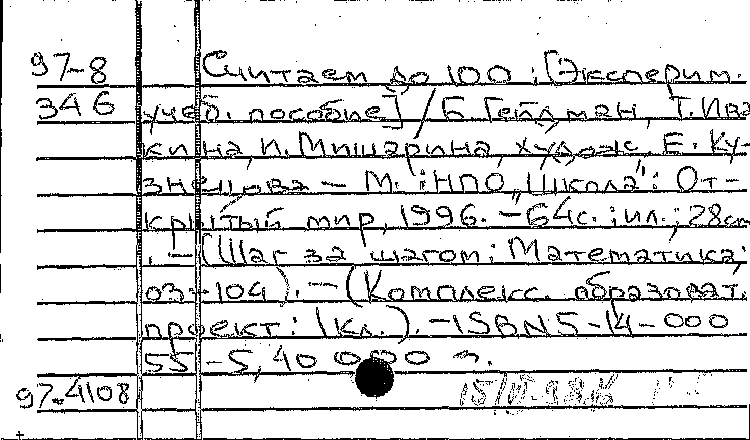 97-8 Считаем до 100 : [Эксперим.
346 учеб. пособие] / Б. Гейдман, Т. Ива
кина, И. Мишарина, худож. Е. Ку-
знецова — М. : НПО „Школа" : От-
крытый мир, 1996. — 64с. : ил. ; 28см
. — (Шаг за шагом : Математика;
03-104). — (Комплекс. образоват.
проект : 1 кл.). — ISBN 5-14-000
55-5, 40 000 э.
97-4108